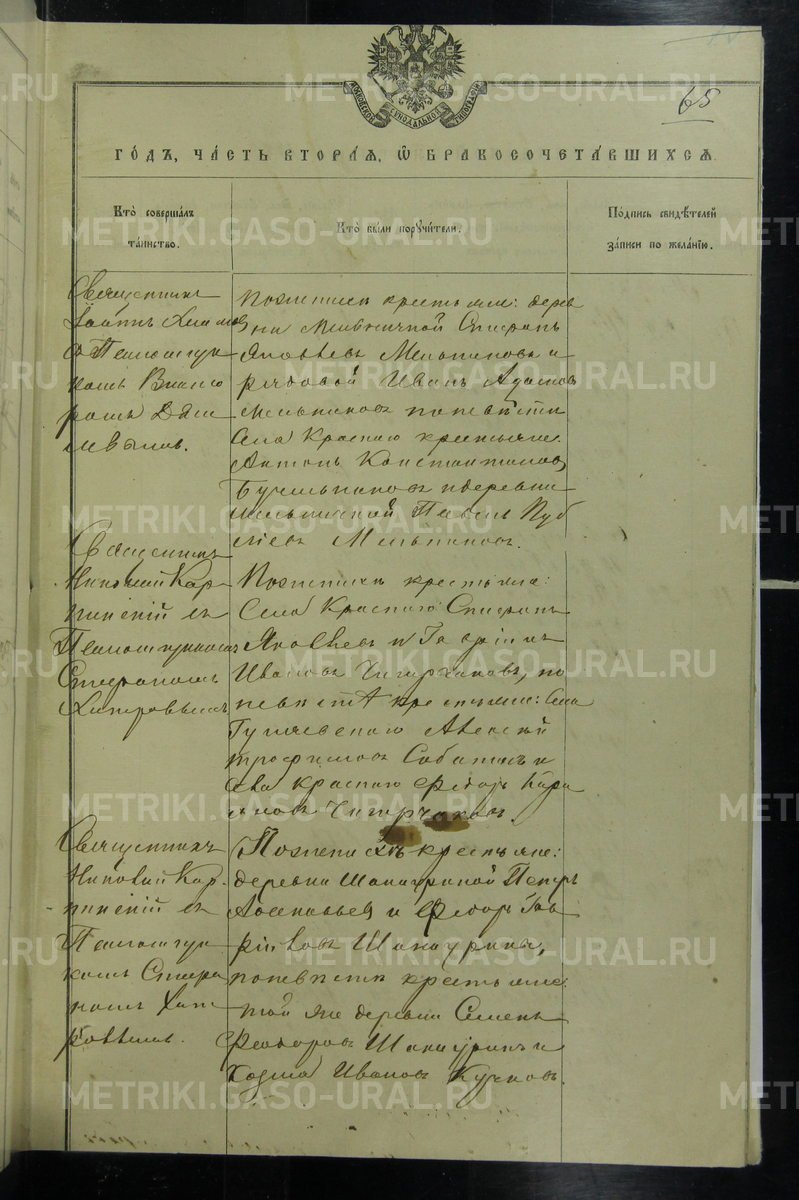 65
МОСКОВСКОЙ СѴНОДАЛЬНОЙ ТИПОГРАФІИ
ГО́ДЪ, ЧА́СТЬ ВТОРА́Я, Ѡ҆ БРАКОСОЧЕТА́ВШИХСЯ.
Кто̀ соверша́лъ
та́инство.
Кто̀ бы́ли порꙋчи́тели.
По́дпись свидѣ́телей
за́писи по жела́нїю.
Священникъ
Іоаннъ
съ Псаломщи
комъ Викто
ромъ
Поженихѣ крестьяне: дерев
ни Мельничной Спиридонъ
Яковлевъ Мельниковъ и
рядовой Иванъ Адамовъ
Мельниковъ поневѣстѣ
Села Краснаго крестьяне
Антонъ Константиновъ
и деревни
Мельничной Павелъ
Мельниковъ.
Священникъ
Николай Кар
пинскій съ
Псаломщикомъ
Стефаномъ
Хитровымъ
Поженихѣ крестьяне:
Села Краснаго Спиридонъ
Яковлевъ и Гавріилъ
Ивановъ Чигирчаковъ, по
невѣстѣ крестьяне: Села
Алексѣй
Трофимовъ и
Села Краснаго Ѳедоръ
Чигирчаковъ.
Священникъ
Николай Кар-
пинскій съ
Псаломщи
комъ Стефа
номъ Хит
ровымъ.
Поженихѣ крестьяне:
деревни Шанауриной Петръ
и Ѳедоръ Гав
рііловъ Шанаурины,
поневѣстѣ крестьяне
той же деревни Семенъ
Ѳеодоровъ Шанауринъ и
Козма Ивановъ
METRIKI.GASO-URAL.RU